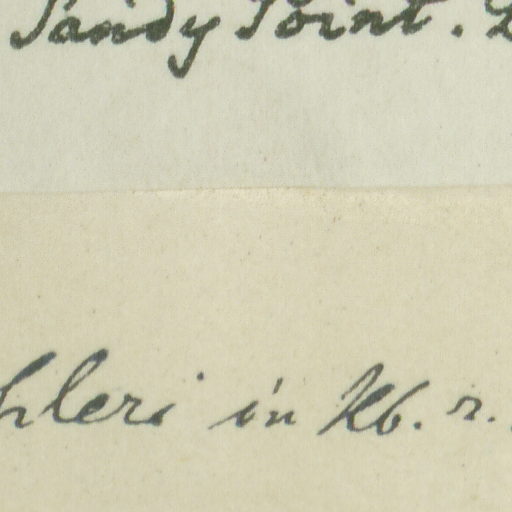 Sandy Point.
hleri in Kb. r.